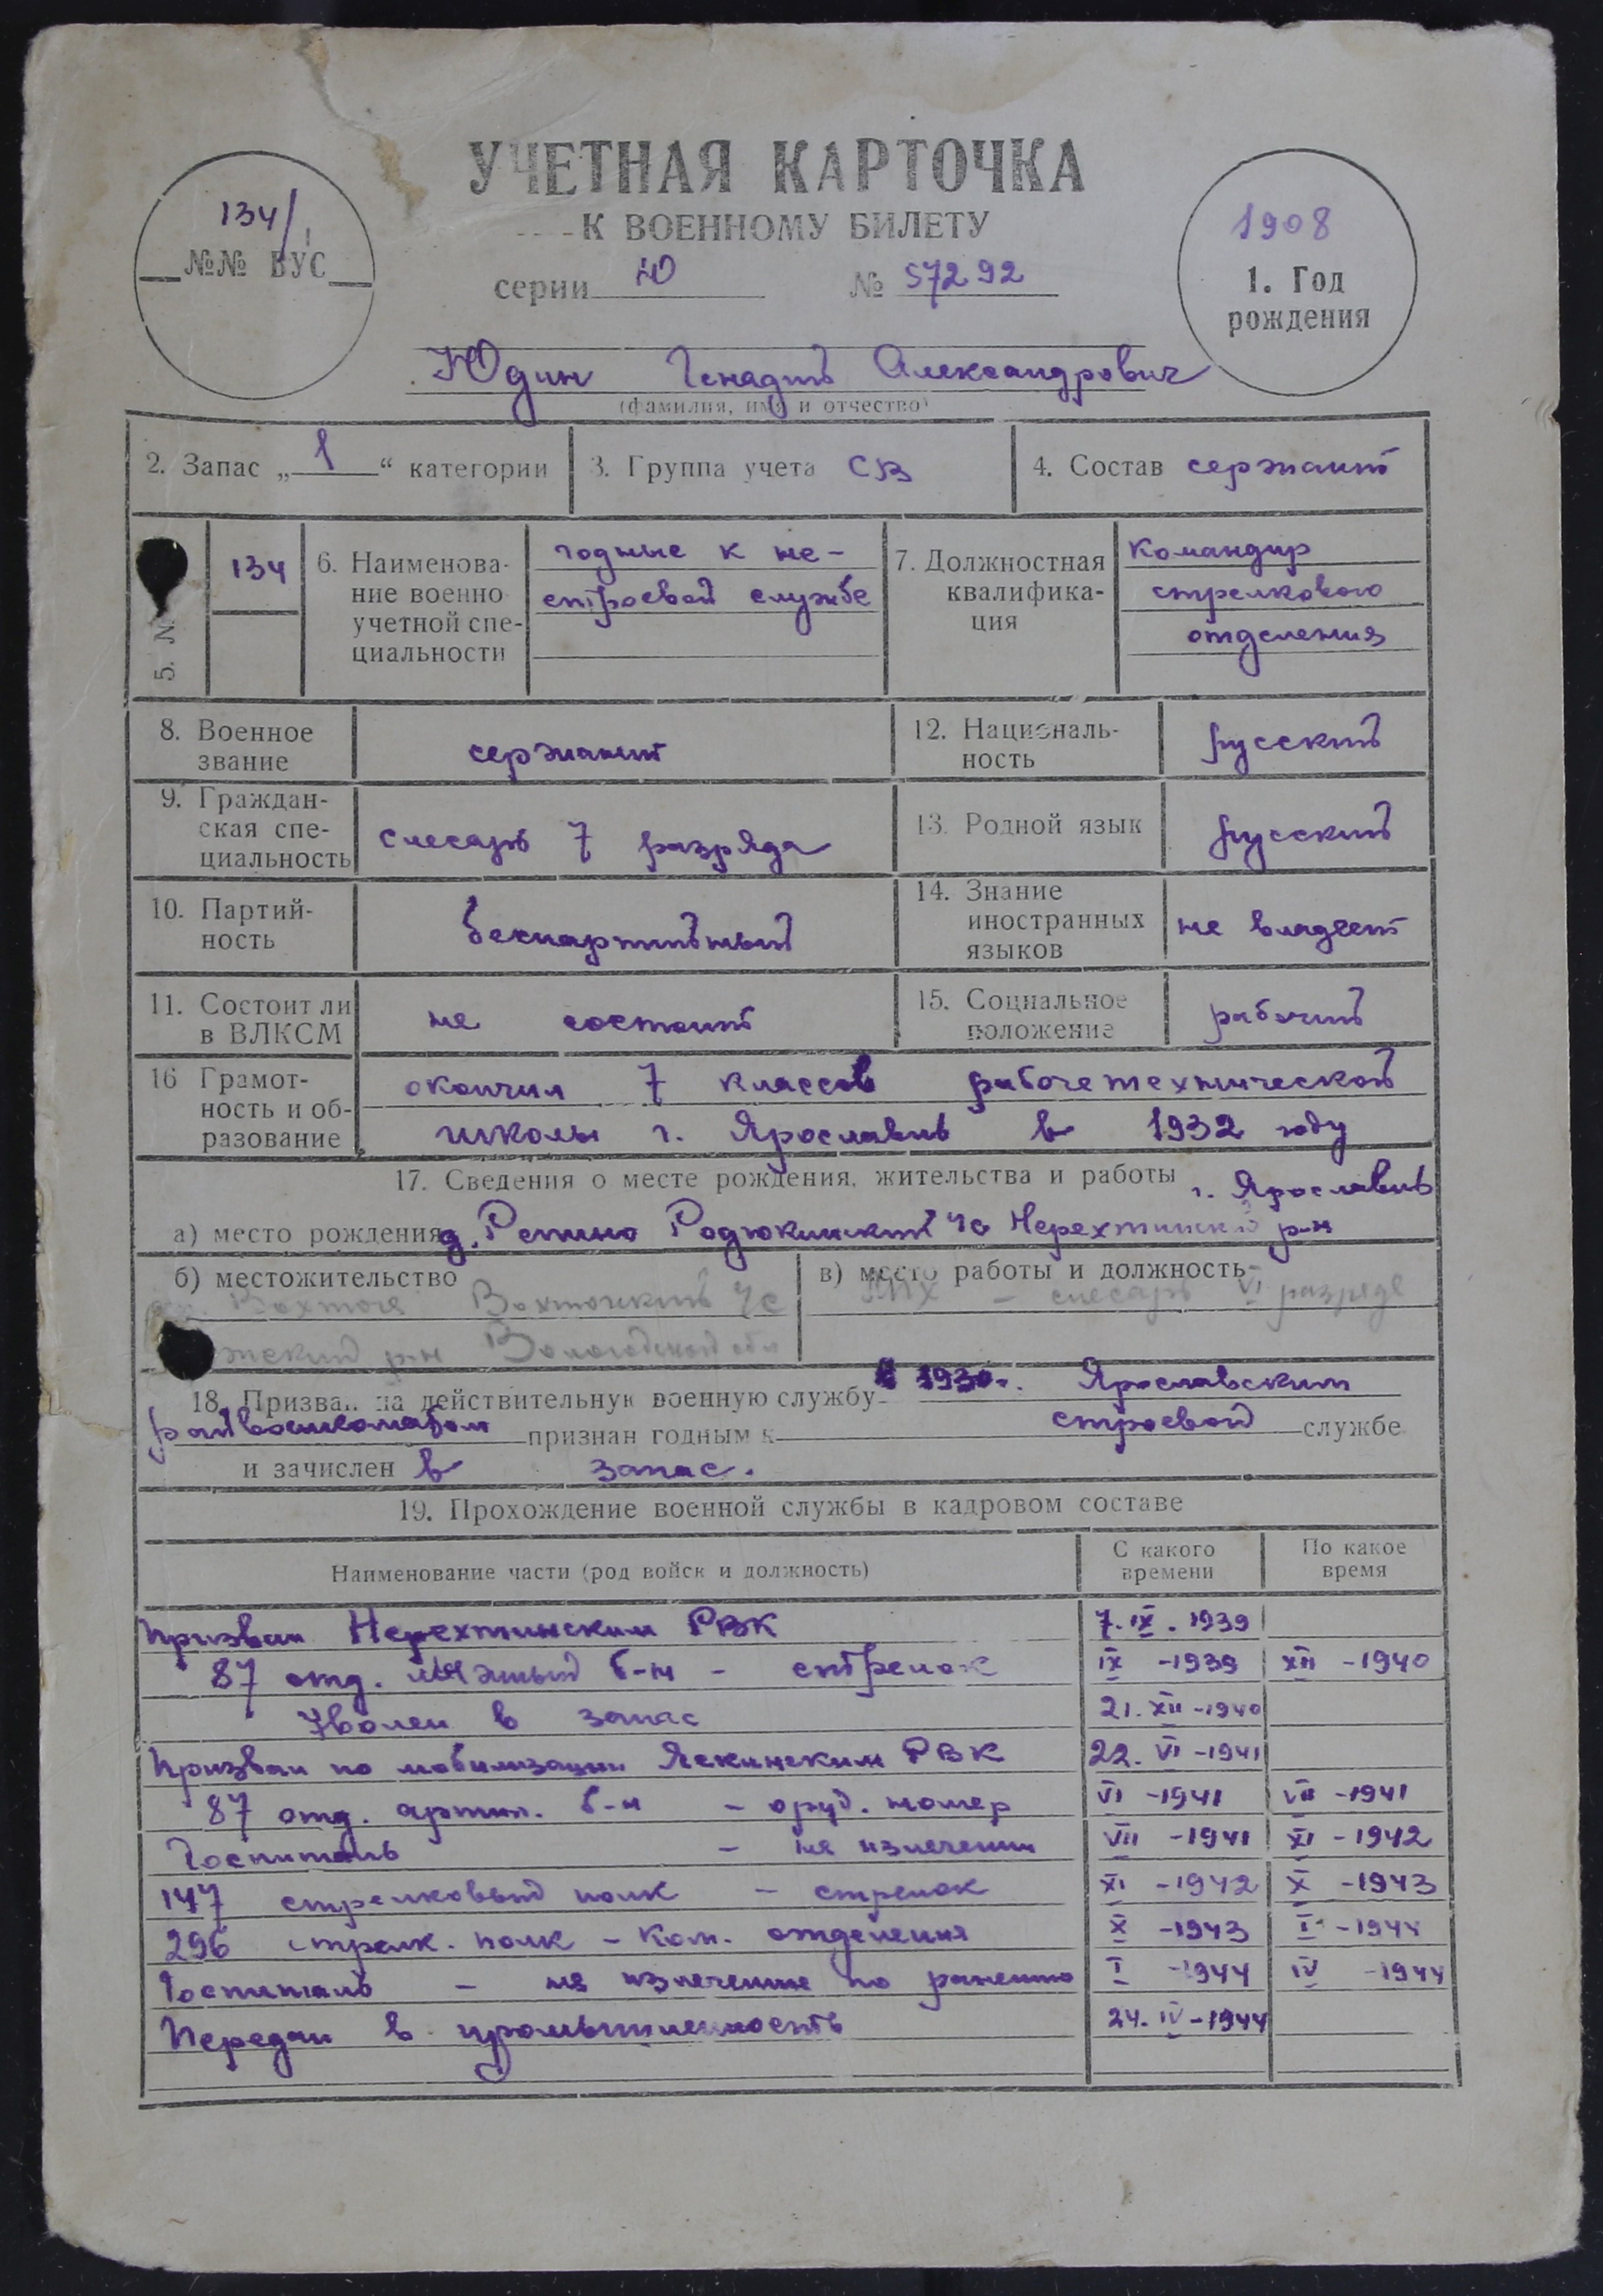 УЧЕТНАЯ КАРТОЧКА
К ВОЕННОМУ БИЛЕТУ
134/
№№ ВУС
серии Ю № 57292
1908
1. Год
рождения
Юдин Генадий Александрович
(фамилия, имя и отчество)
2. Запас „1“ категории
3. Группа учета СВ
4. Состав сержант
5. №
134
6. Наименова-
ние военно
учетной спе-
циальности
годные к не-
строевой службе
7. Должностная
квалифика-
ция
Командир
стрелкового
отделения
8. Военное
звание
сержант
12. Националь-
ность
русский
9. Граждан-
ская спе-
циальность
слесарь 7 разряда
13. Родной язык
русский
10. Партий-
ность
беспартийный
14. Знание
иностранных
языков
не владеет
11. Состоит ли
в ВЛКСМ
не состоит
15. Социальное
положение
рабочий
16 Грамот-
ность и об-
разование
окончил 7 классов рабочетехнической
школы г. Ярославль в 1932 году
17. Сведения о месте рождения, жительства и работы г. Ярославль
а) место рождения д. Репино Родюкинский ч/с Нерехтинский р-н
б) местожительство
Вохтога Вохтожский ч/с
жский р-н Вологодской обл
в) место работы и должность
– слесарь VI разряда
18. Призван на действительную военную службу в 1930 г. Ярославским
райвоенкоматом признан годным к строевой службе
и зачислен в запас.
19. Прохождение военной службы в кадровом составе
Наименование части (род войск и должность)
С какого
времени
По какое
время
Призван Нерехтинским РВК 7.IX.1939
87 отд. б-н – стрелок IX -1939 XII -1940
Уволен в запас 21.XII-1940
Призван по мобилизации РВК 22.VI-1941
87 отд. артил. б-н – оруд. номер VI -1941 VII -1941
Госпиталь – на излечении VII -1941 XI -1942
147 стрелковый полк – стрелок XI -1942 X -1943
296 стрелк. полк – Ком. отделения X -1943 I -1944
Госпиталь – на излечение по ранению I -1944 IV -1944
Передан в промышленность 24.IV-1944